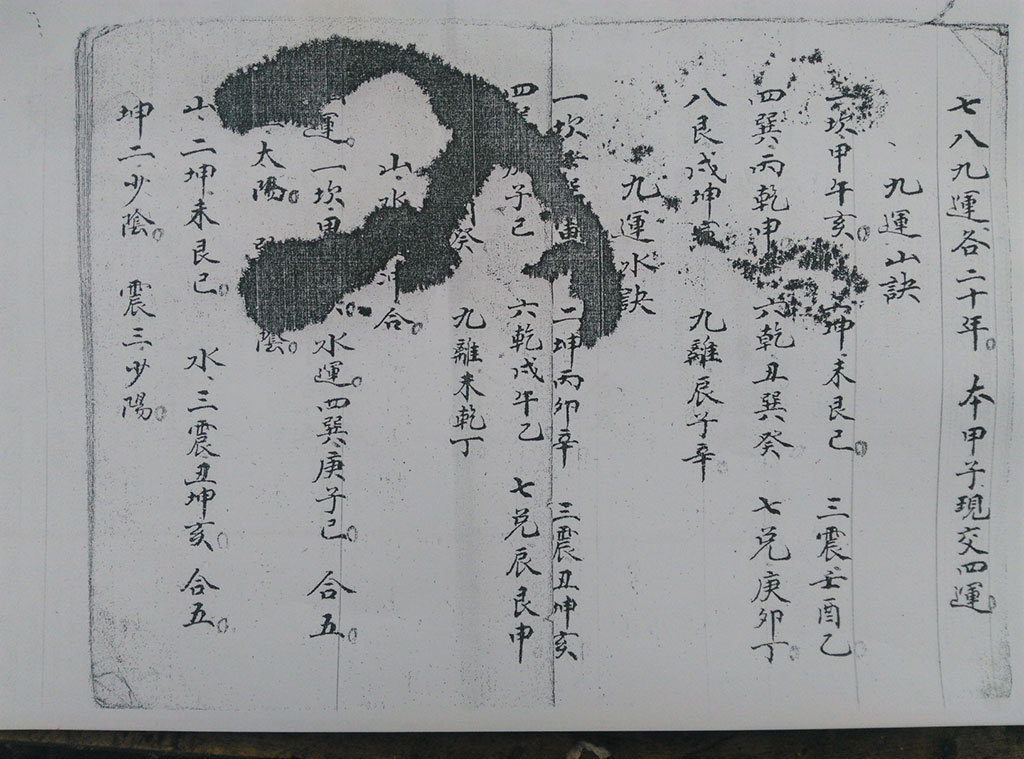 七八九運各二十年。本甲子現交四運。
九運山訣
一坎甲午亥。二坤未艮巳。三震壬酉乙。
四巽丙乾申 六乾丑巽癸 七兌庚卯丁。
八艮戌坤寅 九離辰子辛。
九運水訣
一坎 寅 二坤丙卯辛 三震丑坤亥
四 子巳 六乾戌午乙 七兌辰艮申
癸 九離未乾丁
山水 沖合。
運。一坎甲 水運。四巽庚子巳。合五。
太陽。 陰。
山、二坤未艮巳。水、三震丑坤亥。合五。
坤二少陰。震三少陽。